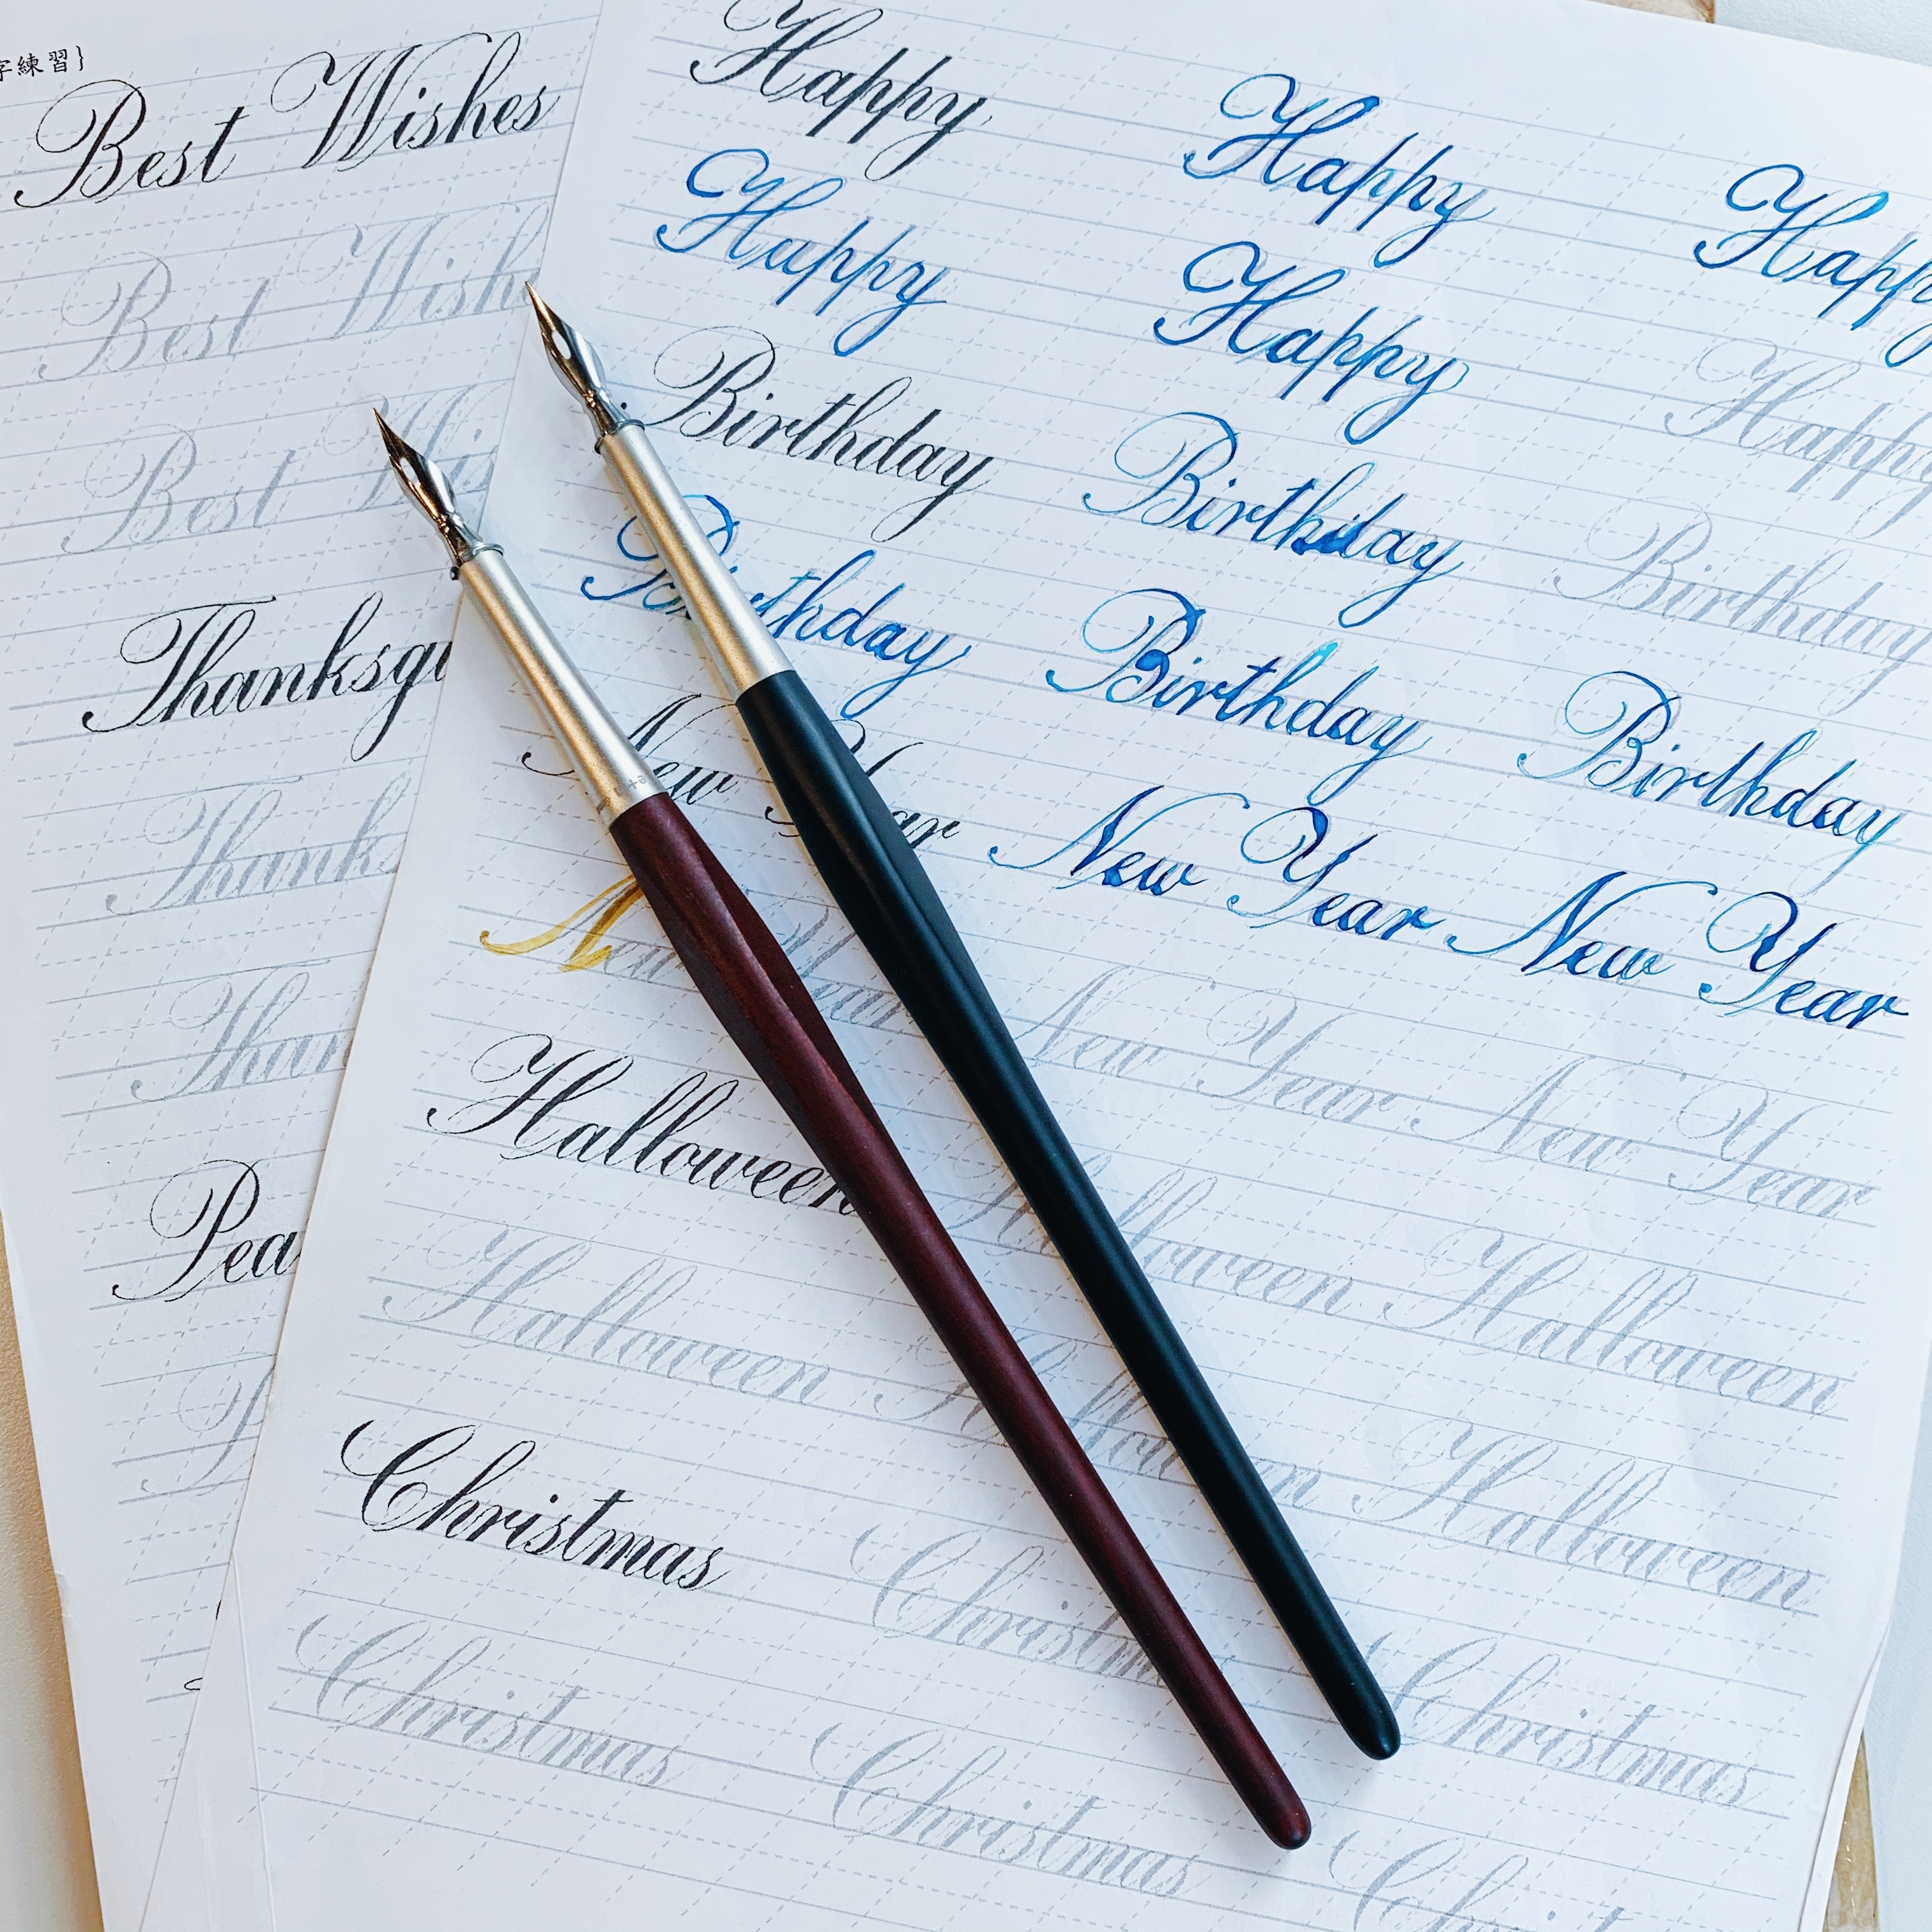 字練習}
Best Wishes
Best Wishes
Best
Thanksgi
Thanks
Than
Pea
Happy Happy Happy
Happy Happy Happy
Birthday Birthday Birthday
Birthday Birthday Birthday
New Year New Year New Year
New Year New Year New Year
Halloween Halloween Halloween
Halloween Halloween Halloween
Christmas Christmas Christmas
Christmas Christmas